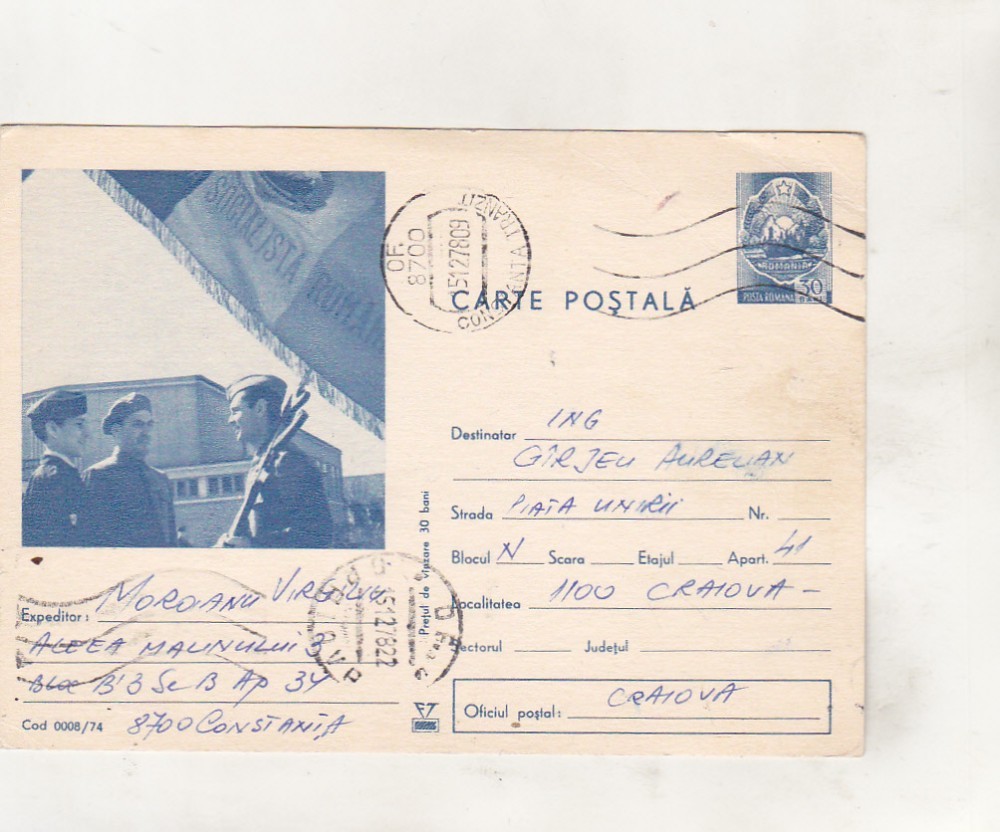 SOCIALISTA ROMÂN
OF.
8700
15127809
CONSTANTA TRANZIT
ROMANIA
POSTA ROMANA 30
BANI
CARTE POŞTALĂ
Destinatar ING
GÎRJEU AURELIAN
Strada PIATA UNIRII Nr.
Blocul N Scara Etajul Apart. 41
Localitatea 1100 CRAIOVA -
Sectorul Judeţul
Oficiul poştal: CRAIOVA
Preţul de vînzare 30 bani
Expeditor: MOROIANU VIRGILIU
ALEEA MALINULUI 3
Bloc B'3 Sc B Ap 34
Cod 0008/74 8700 CONSTANTA
15127822